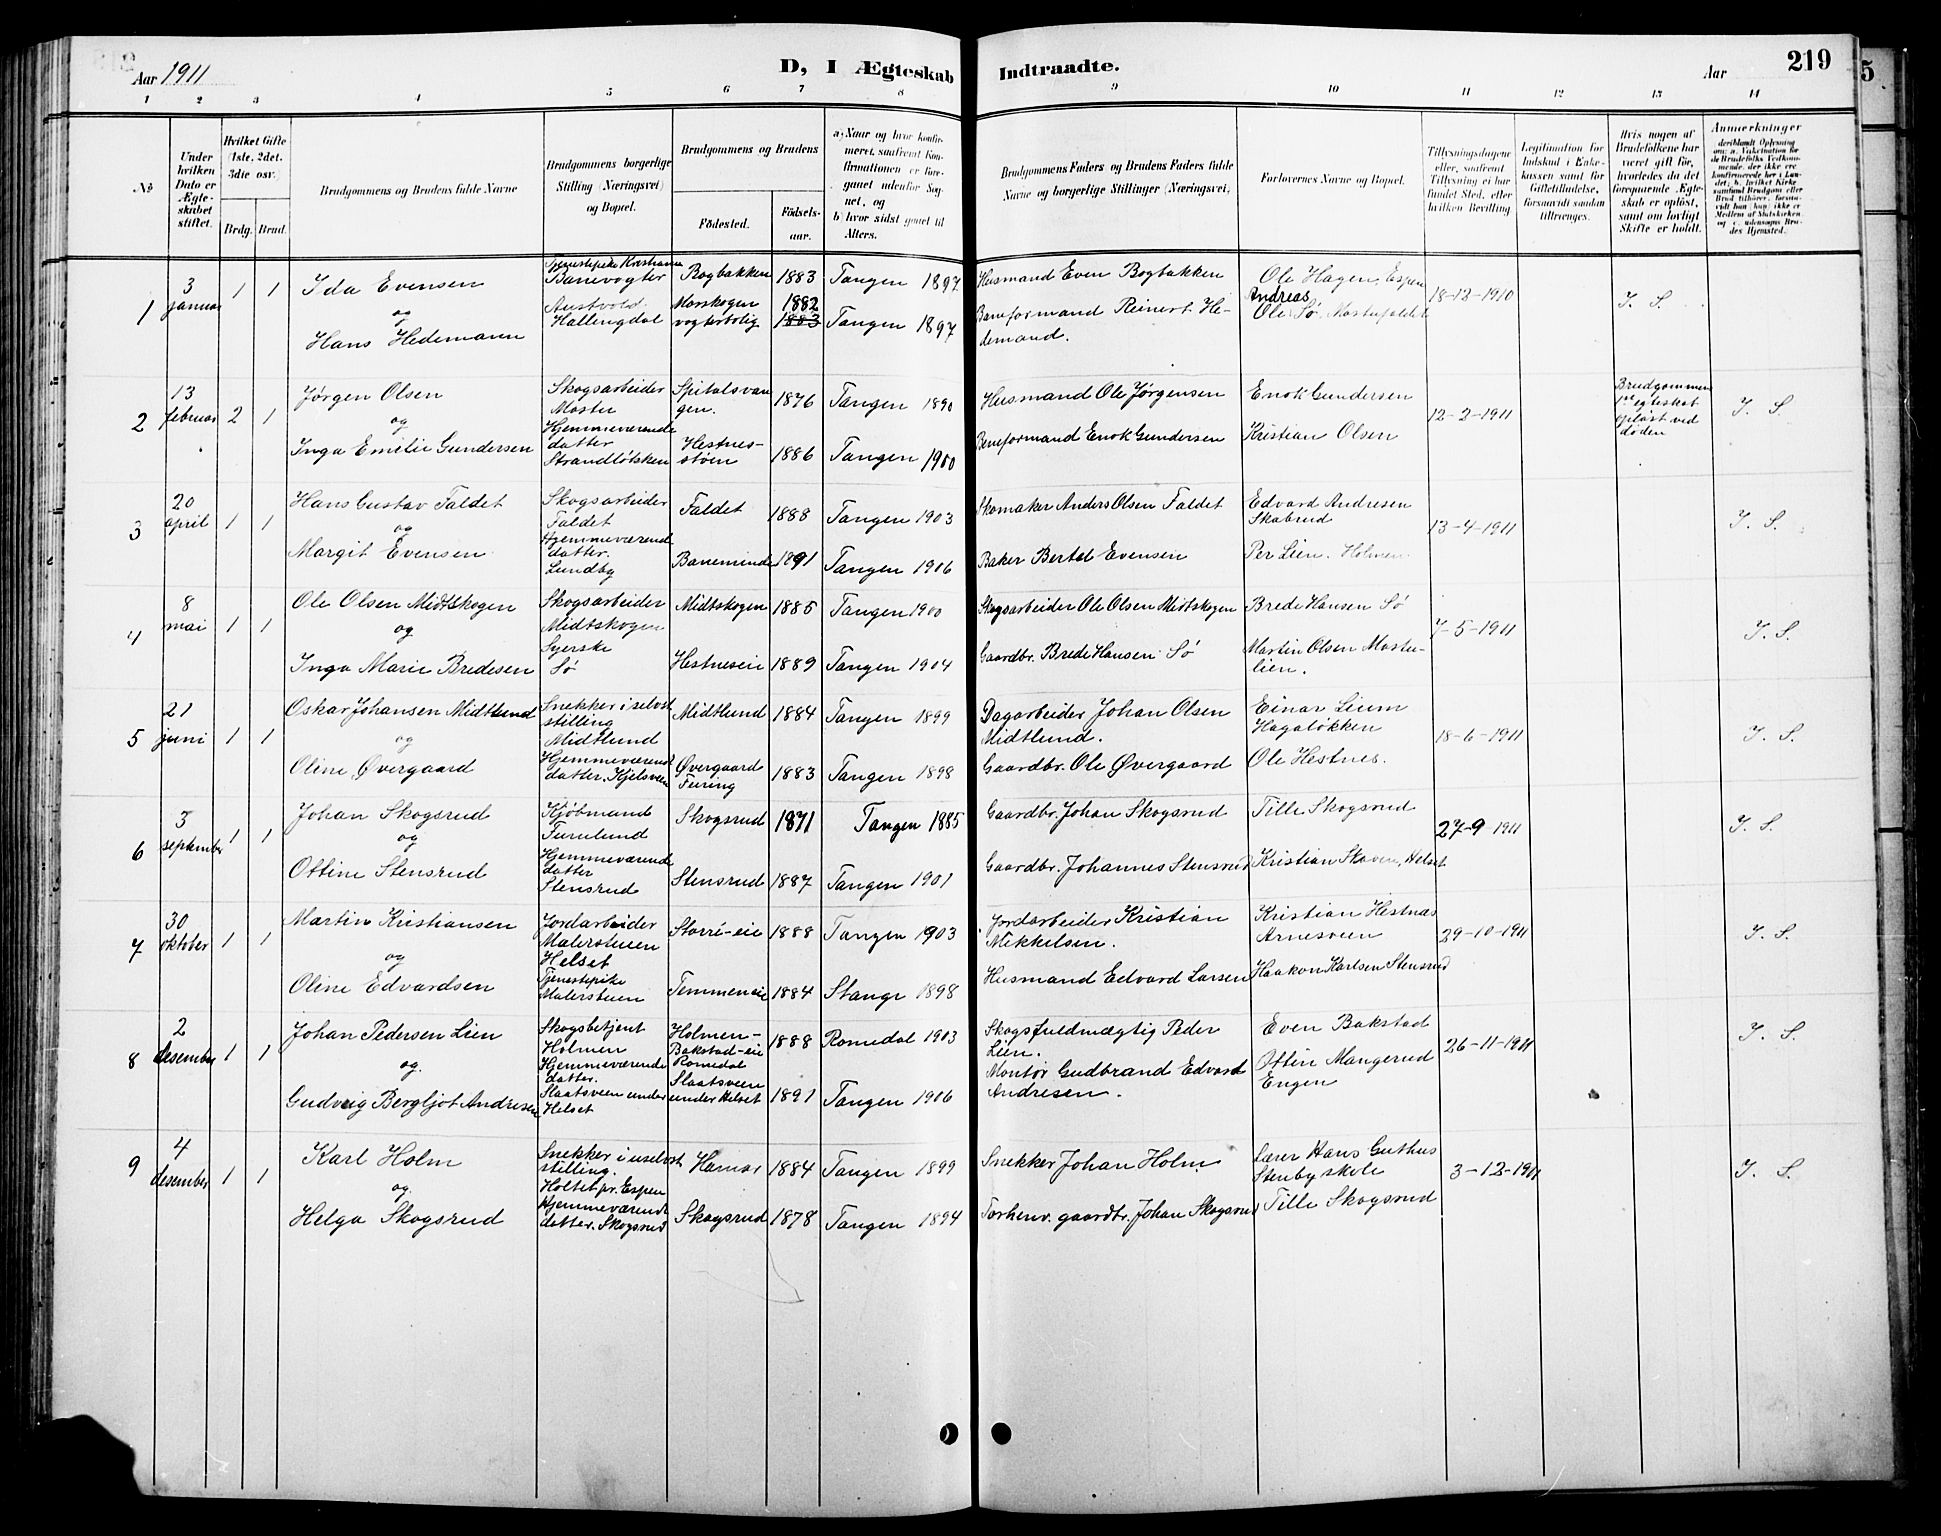 Aar 1911
D, I Ægteskab Indtraadte.
Aar
219
1 2 3 4 5 6 7 8 9 10 11 12 13 14
No
Under hvilken Dato er Ægteskabet stiftet.
Hvilket Gifte (1ste, 2det, 3die osv.)
Brdg. Brud.
Brudgommens og Brudens fulde Navne
Brudgommens borgerlige Stilling (Næringsvei) og Bopæl.
Brudgommens og Brudens
Födested.
Födsels-aar.
a) Naar og hvor konfirmeret, saafremt Konfirmationen er foregaaet udenfor Sognet, og
b) hvor sidst gaaet til Alters.
Brudgommens Faders og Brudens Faders fulde Navne og borgerlige Stillinger (Næringsvei)
Forlovernes Navne og Bopæl.
Tillysningsdagene eller, saafremt Tillysning ei har fundet Sted, efter hvilken Bevilling
Legitimation for Indskud i Enkekassen samt for Giftetilladelse, forsaavidt saadan tiltrænges.
Hvis nogen af Brudefolkene har været gift før, hvorledes da det foregaaende Ægteskab er opløst, samt om lovligt Skifte er holdt.
Anmærkninger
1
3 januar
1 1
Ida Evensen
og
Hans Hedemann
Tjenestepike Kristiania
Banevogter
Austvold
Hallingdal
Bogbakken 1883 Tangen 1897
Morskogen vogterbolig 1882 1883 Tangen 1897
Husmand Even Bogbakken
Baneformand Reinert Hedemand.
Ole Hagen, Espen
Andreas
Ole Sø, Mostufaldet
18-12-1910
I. S.
2
13 februar
2 1
Jørgen Olsen
og
Inga Emilie Gundersen
Skogsarbeider
Mostu
Hjemmeværende
datter
Strandløkken
Spitalsvangen. 1876 Tangen 1890
Hestnes-støen 1886 Tangen 1900
Husmand Ole Jørgensen
Baneformand Enok Gundersen
Enok Gundersen
Kristian Olsen
12-2-1911
Brudgommens
1ste egteskab
opløst ved
døden
I. S.
3
20 april
1 1
Hans Gustav Faldet
og
Margit Evensen
Skogsarbeider
Faldet
Hjemmeværende
datter.
Lundby
Faldet 1888 Tangen 1903
Baneminde 1891 Tangen 1906
Skomaker Anders Olsen Faldet
Baker Bertel Evensen
Edvard Andresen
Skabrud
Per Lien. Holmen
13-4-1911
I. S.
4
8 mai
1 1
Ole Olsen Midtskogen
og
Inga Marie Bredesen
Skogsarbeider
Midtskogen
Syerske
Sø
Midtskogen 1885 Tangen 1900
Hestneseie 1889 Tangen 1904
Skogsarbeider Ole Olsen Midtskogen
Gaardbr. Brede Hansen Sø
Brede Hansen Sø
Martin Olsen Mostu-
lien.
7-5-1911
I. S.
5
21 juni
1 1
Oskar Johansen Midtlund
og
Oline Øvergaard
Snekker i selvst
stilling
Midtlund
Hjemmeværende
datter. Kjelsveen
Midtlund 1884 Tangen 1899
Øvergaard Feiring 1883 Tangen 1898
Dagarbeider Johan Olsen
Midtlund.
Gaardbr. Ole Øvergaard
Einar Lium
Hagaløkken
Ole Hestnes.
18-6-1911
I. S.
6
september
1 1
Johan Skogsrud
og
Ottine Stensrud
Kjøbmand
Furulund
Hjemmeværende
datter
Stensrud
Skogsrud 1871 Tangen 1885
Stensrud 1887 Tangen 1901
Gaardbr. Johan Skogsrud
Gaardbr. Johannes Stensrud
Tille Skogsrud
Kristian Skaven, Helset
27-9-1911
I. S.
7
30 oktober
1 1
Martin Kristiansen
og
Oline Edvardsen
Jordarbeider
Malerstuen
Helset
Tjenestepike
Malerstuen
Storré-eie 1888 Tangen 1903
Temmeneie 1884 Stange 1898
Jordarbeider Kristian
Mikkelsen.
Husmand Edvard Larsen
Kristian Hestnæs
Arnesveen
Haakon Karlsen Stensrud
29-10-1911
I. S.
8
2 desember
1 1
Johan Pedersen Lien
og.
Gudvig Bergljot Andresen
Skogsbetjent
Holmen
Hjemmeværende
datter.
Slaatsveen under
Helset
Holmen-
Bakstad-eie
Romedal 1888 Romedal 1903
Slaatsveen
under Helset 1891 Tangen 1906
Skogsfuldmægtig Peder
Lien.
Montør Gudbrand Edvard
Andresen.
Even Bakstad
Ottin Mangerud
Engen
26-11-1911
I. S.
9
4 desember
1 1
Karl Holm
og
Helga Skogsrud
Snekker i uselvst
stilling.
Holtet pr. Espen
Hjemmeværende
datter. Skogsrud
Hamar 1884 Tangen 1899
Skogsrud 1878 Tangen 1894
Snekker Johan Holm
Torhenv. gaardbr. Johan Skogsrud
Lærer Hans Guthus
Stenby skole
Tille Skogsrud
3-12-1911
I. S.